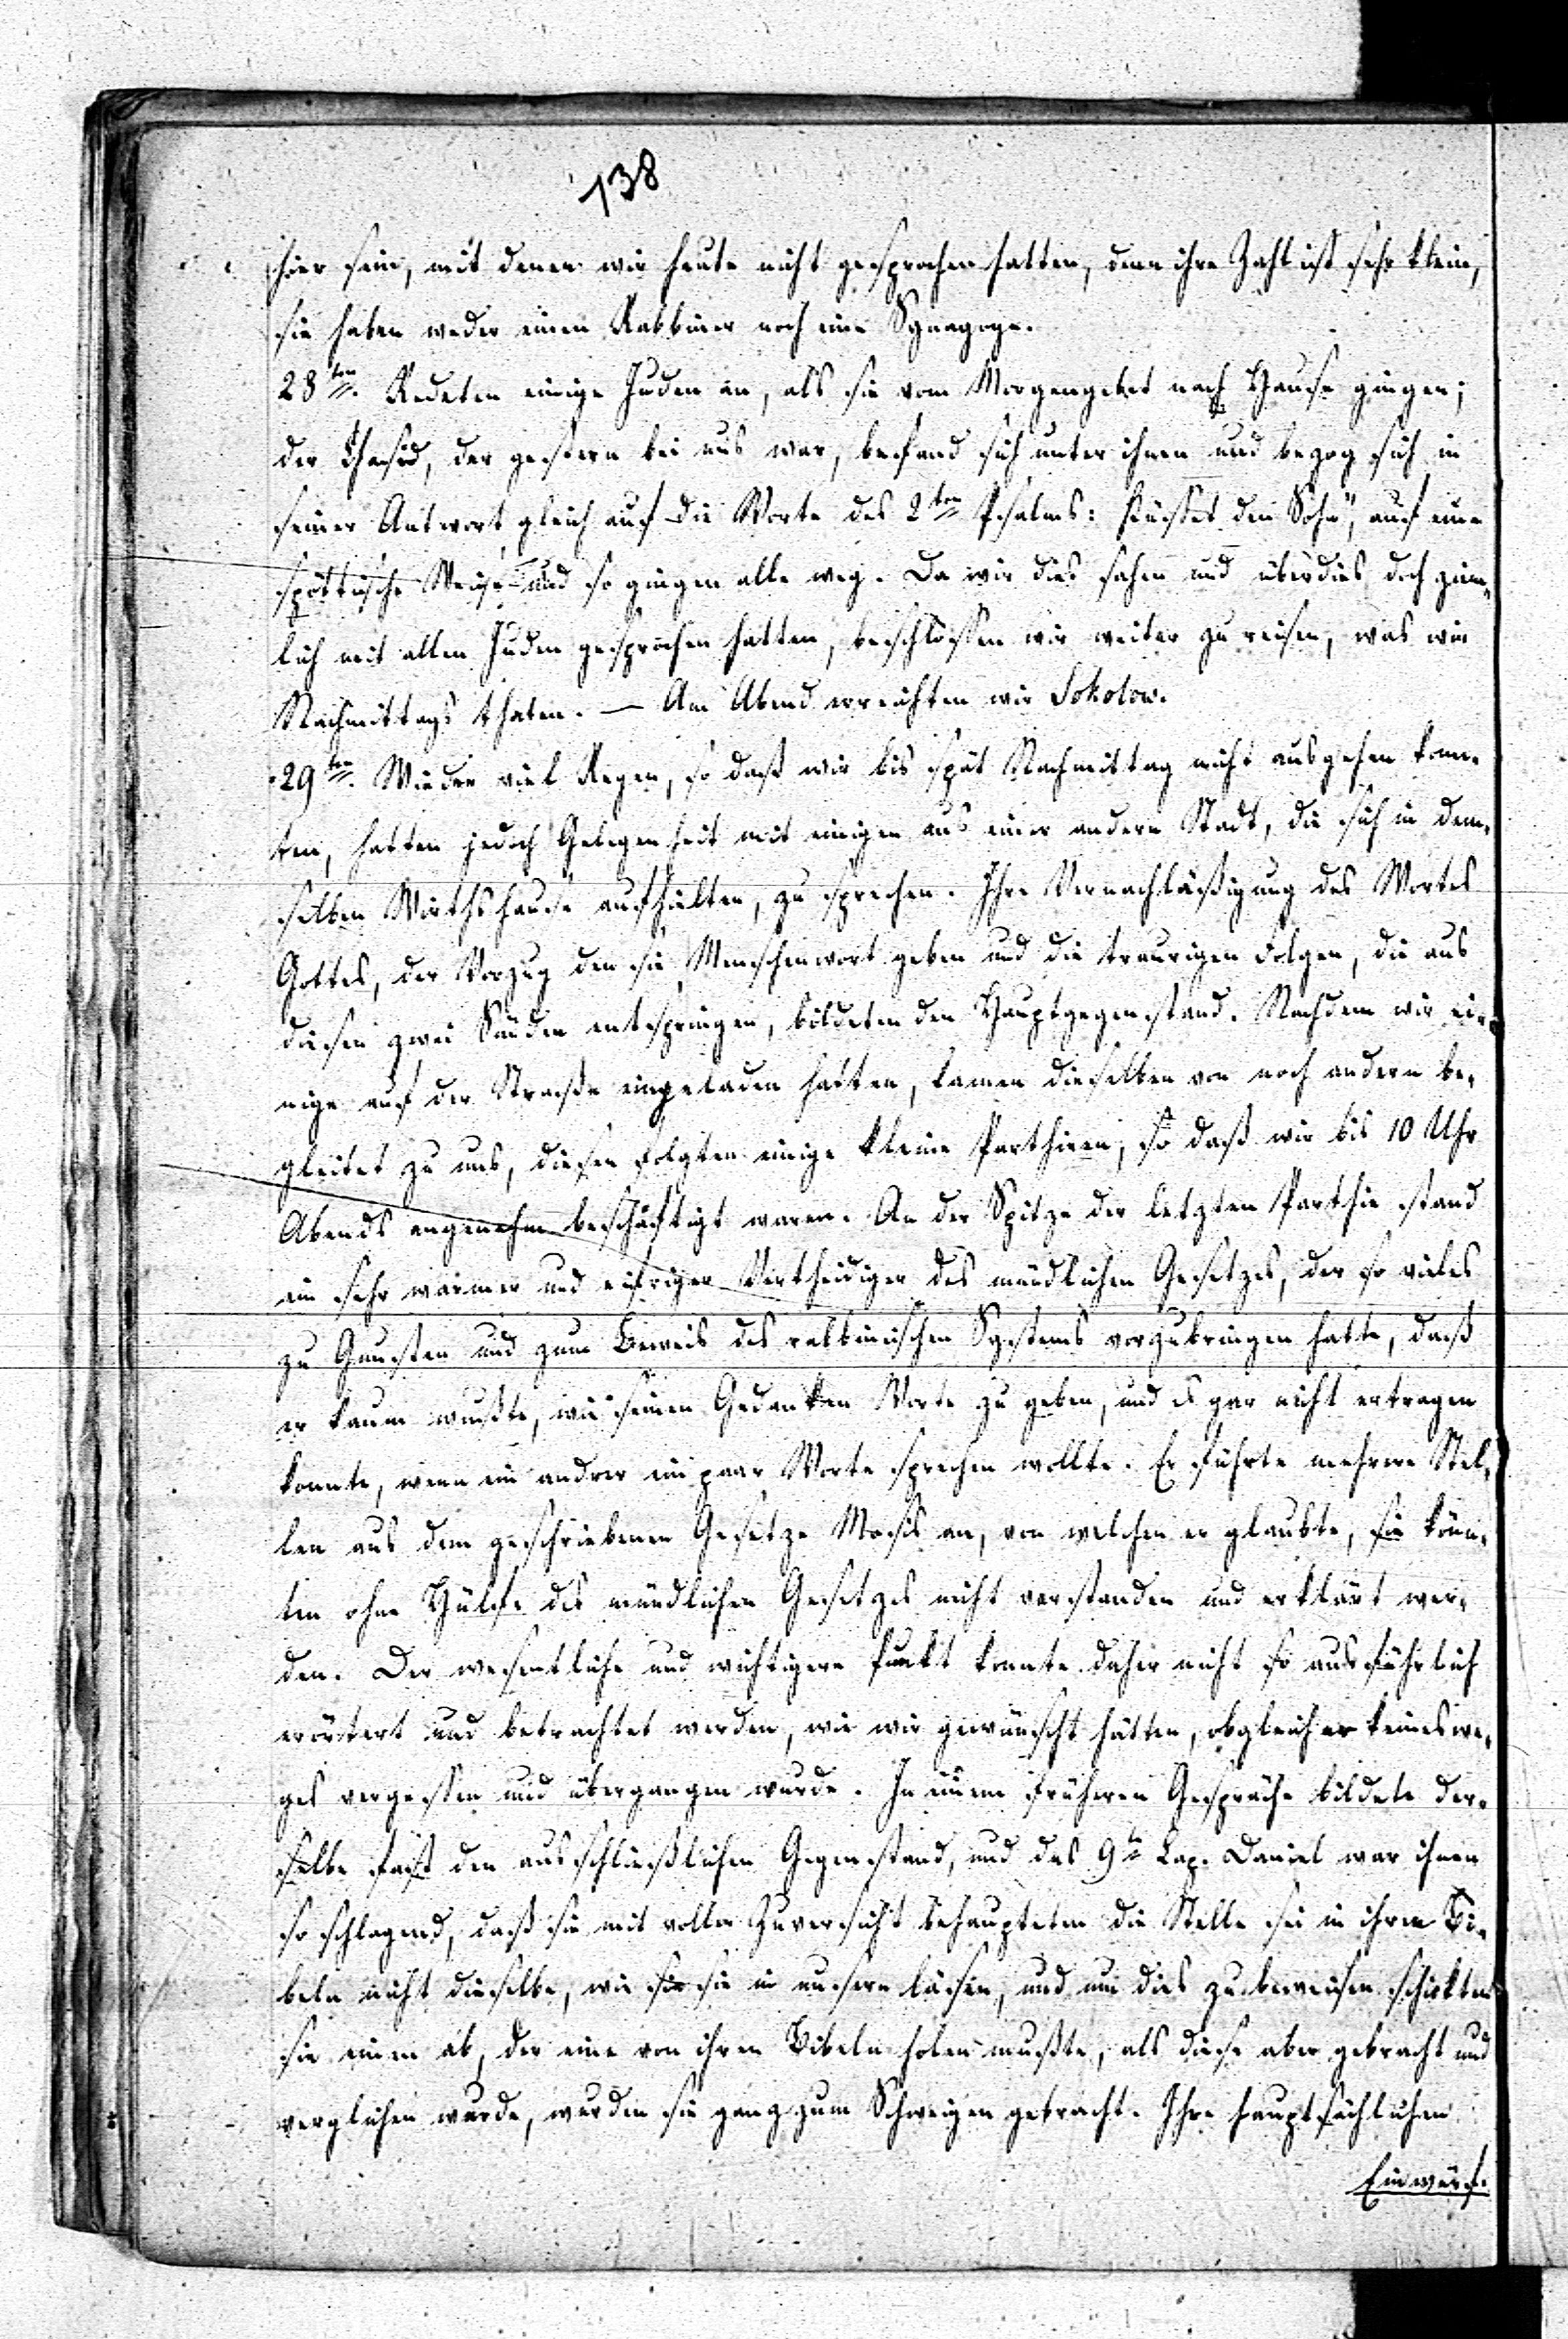 138
hier sein, mit denen wir heute nicht gesprochen hatten, denn ihre Zahl ist sehr klein,
sie haben weder einen Rabbiner noch eine Synagoge.
28ten. Redeten einige Juden an, als sie vom Morgengebet nach Hause gingen;
der Chasid, der gestern bei uns war, befand sich unter ihnen und bezog sich in
seiner Antwort gleich auf die Worte des 2ten Psalms: Küsset den Sohn", auf eine
spöttische Weise und so gingen alle weg. Da wir dies sahen und überdies doch ziem-
lich mit allen Juden gesprochen hatten, beschlossen wir weiter zu reisen, was wir
Nachmittags thaten. — Am Abend erreichten wir Sokolow.
29ten. Wieder viel Regen, so daß wir bis spät Nachmittag nicht ausgehen konn-
ten, hatten jedoch Gelegenheit mit einigen aus einer andern Stadt, die sich in dem-
selben Wirthshause aufhielten, zu sprechen. Ihre Vernachläßigung des Wortes
Gottes, der Vorzug den sie Menschenwort geben und die traurigen Folgen, die aus
diesen zwei Sünden entspringen, bildeten den Hauptgegenstand. Nachdem wir ei-
nige auf der Straße eingeladen hatten, kamen dieselben von noch andern be-
gleitet zu uns, diesen folgten einige kleine Parthieen, so daß wir bis 10 Uhr
Abends angenehm beschäftigt waren. An der Spitze der letzten Parthie stand
ein sehr warmer und eifriger Vertheidiger des mündlichen Gesetzes, der so vieles
zu Gunsten und zum Beweis des rabbinischen Systems vorzubringen hatte, daß
er kaum wußte, wie seinen Gedanken Worte zu geben, und es gar nicht ertragen
konnte, wenn ein andrer ein paar Worte sprechen wollte. Er führte mehrere Stel-
len aus dem geschriebenen Gesetze Mosis an, von welchen er glaubte, sie könn-
ten ohne Hülfe des mündlichen Gesetzes nicht verstanden und erklärt wer-
den. Der wesentliche und wichtigere Punkt konnte daher nicht so ausführlich
erörtert und betrachtet werden, wie wir gewünscht hätten, obgleich er keineswe-
ges vergessen und übergangen wurde. In einem früheren Gespräche bildete der-
selbe fast den ausschließlichen Gegenstand, und das 9te Cap. Daniel war ihnen
so schlagend, daß sie mit voller Zuversicht behaupteten die Stelle sei in ihren Bi-
beln nicht dieselbe, wie sie sie in unsern läsen, und um dies zu beweisen schickten
sie einen ab, der eine von ihren Bibeln holen mußte, als diese aber gebracht und
verglichen wurde, wurden sie ganz zum Schweigen gebracht. Ihre hauptsächlichen
Einwürf.